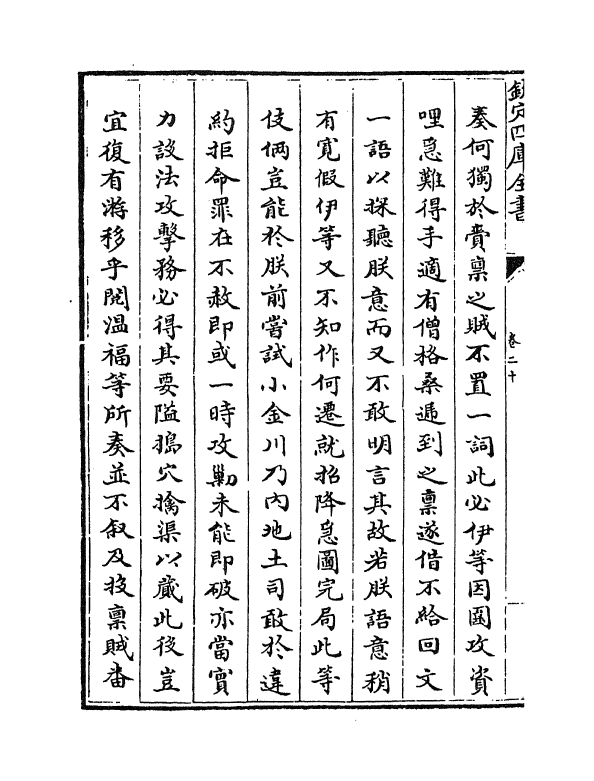 欽定四庫全書
卷二十
奏何獨於賫稟之賊不置一詞此必伊等因圍攻資
哩急難得手適有僧格桑遞到之稟遂借不給回文
一語以探聽朕意而又不敢明言其故若朕語意稍
有寛假伊等又不知作何遷就招降急圖完局此等
伎倆豈能於朕前嘗試小金川乃内地土司敢於違
約拒命罪在不赦即或一時攻勦未能即破亦當實
力設法攻擊務必得其要隘搗穴擒渠以蕆此後豈
宜復有游移乎閱溫福等所奏並不叙及投稟賊番